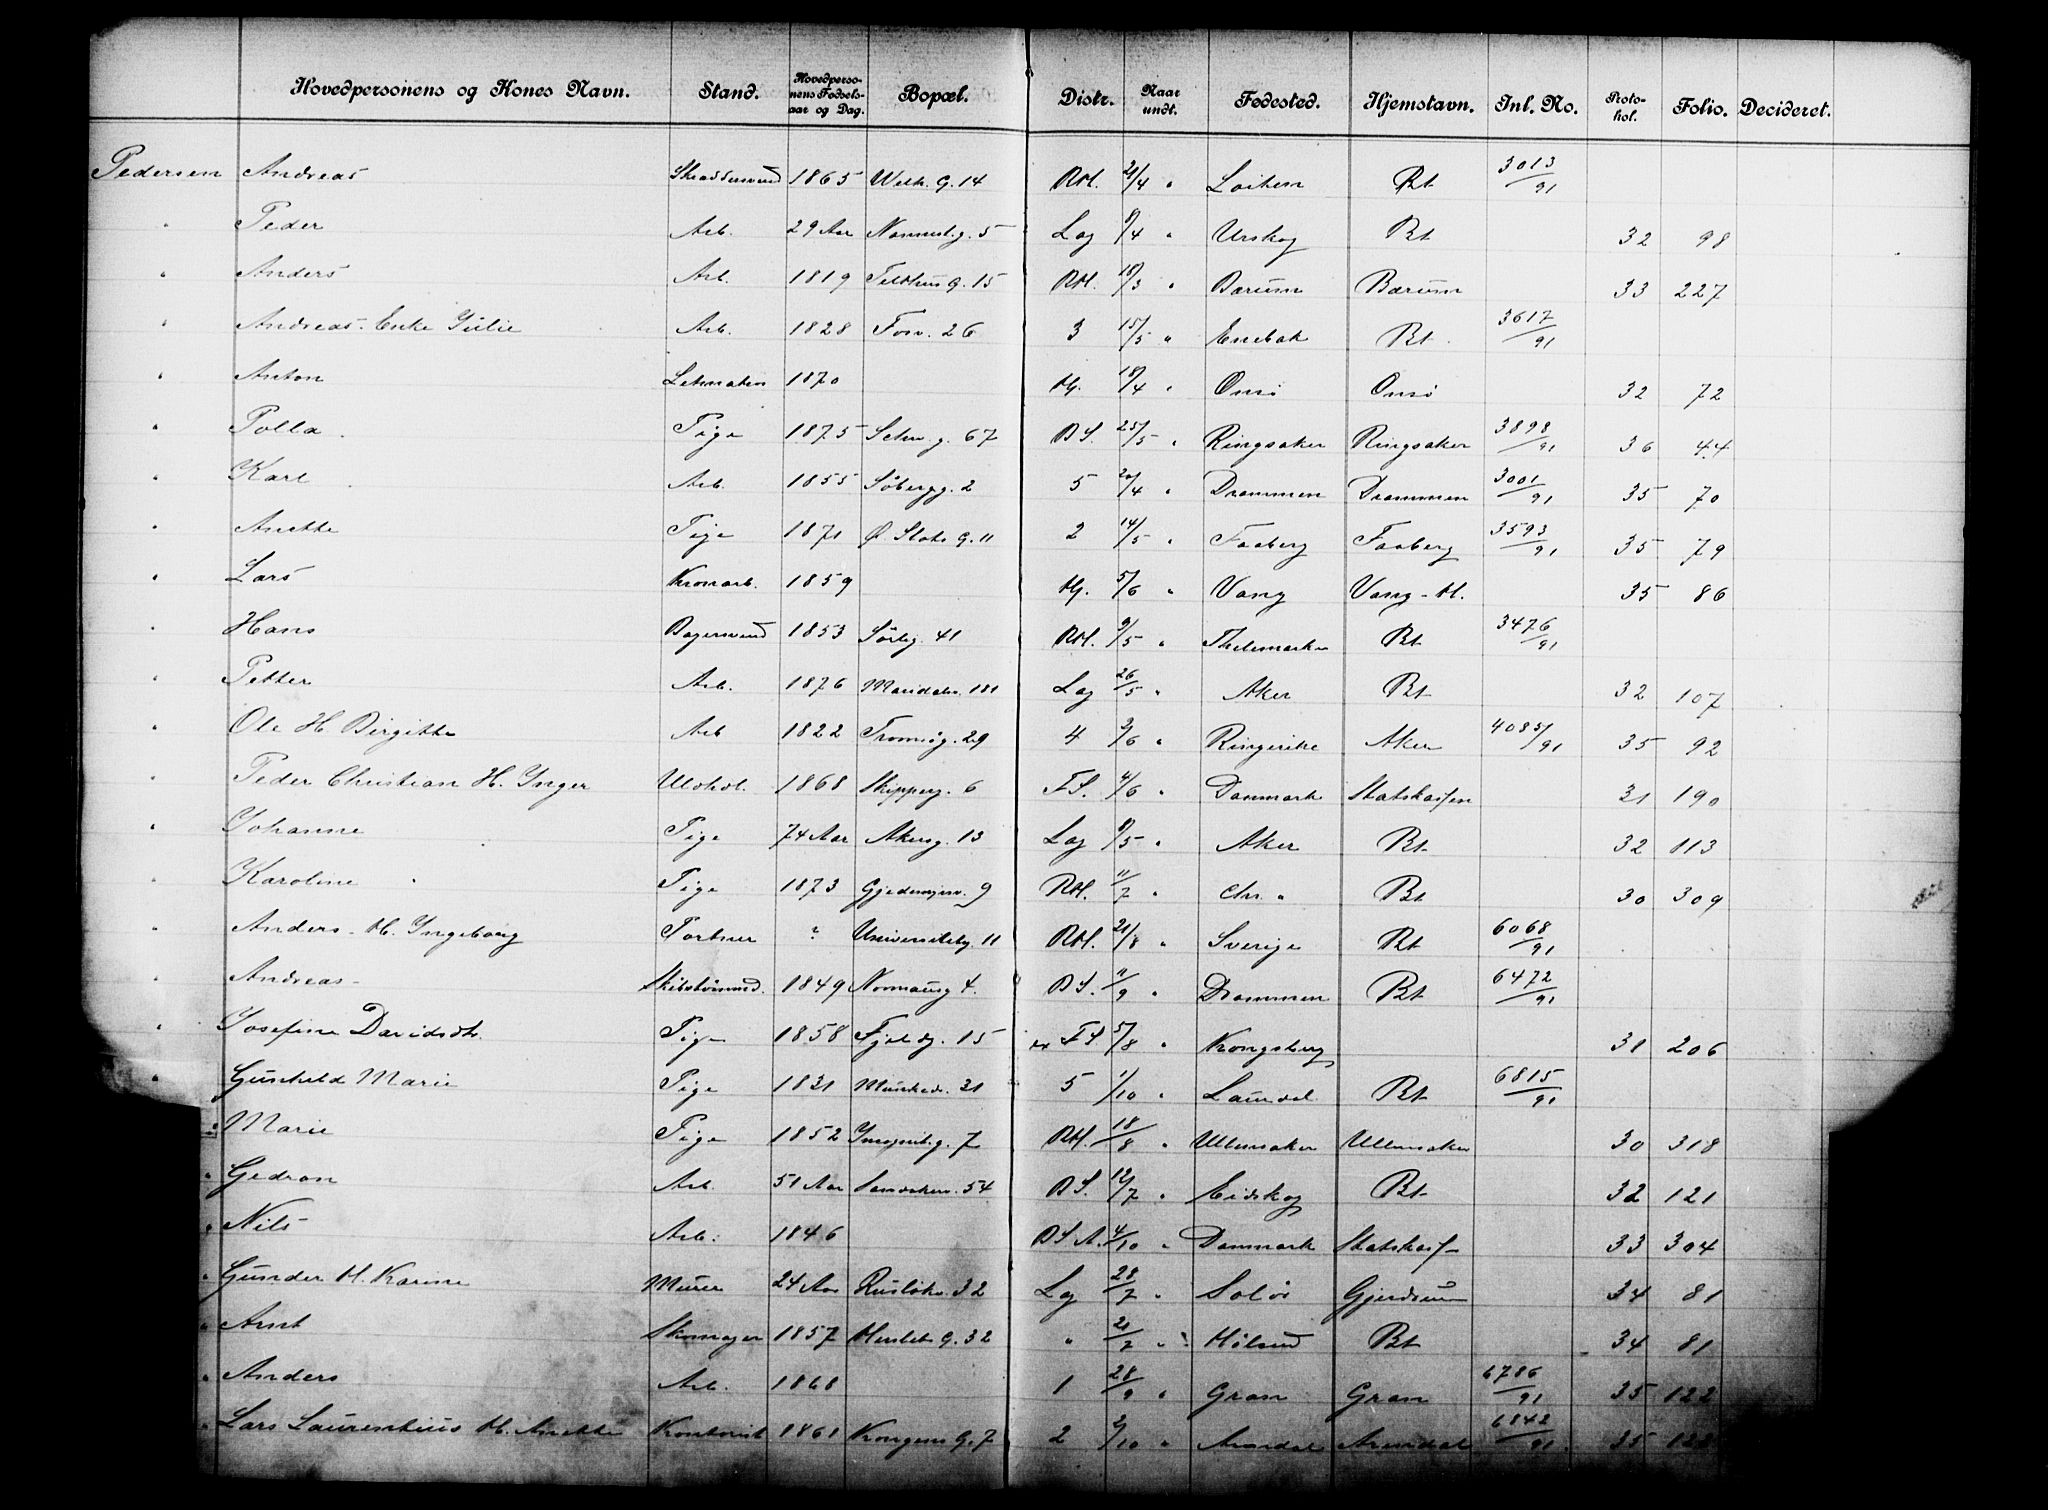 Hovedpersonens og Kones Navn. Stand. Hovedpersonens Fødselsaar og Dag. Bopæl. Distr. Naar undt. Fødested. Hjemstavn. Inl. No. Protokol. Folio. Decideret.
Pedersen Andreas 1865 G. 14 RH. 21/4 " Løiten Bt 3013/91
" Peder Arb. 29 Aar 5 Lag 8/4 " Urskog Bt 32 98
" Anders Arb. 1819 Telthus G. 15 RH. 18/3 " Bærum Bærum 33 227
" Andreas. Enke Julie Arb. 1828 Fosv. 26 3 15/5 " Enebak Bt. 3617/91
" Anton Letmatros 1870 H. 18/4 " Onsø Onsø 32 72
" Polla Pige 1875 Schw. g. 67 BS. 25/5 " Ringsaker Ringsaker 3898/91 36 44
" Karl Arb. 1855 Söbergg. 2 5 20/4 " Drammen Drammen 3001/91 35 70
" Anette Pige 1871 Ø. Slots G. 11 2 14/5 " Faaberg Faaberg 3593/91 35 79
" Lars Kronarb. 1859 H. 5/6 " Vang Vang - H. 35 86
" Hans Bagersvend 1853 Sörlig. 41 RH. 9/5 " Thelemarken Bt 3476/91
" Petter Arb. 1876 Maridalsv. 181 Lag 26/5 " Aker Bt 32 107
" Ole H. Birgitte Arb 1822 Tromsøg. 29 4 2/6 " Ringerike Aker 4085/91 35 92
" Peder Christian H. Inger Uldhdl. 1868 Skipperg. 6 FS. 4/6 " Danmark Statskassen 31 190
" Johanne Pige 74 Aar Akersg. 13 Lag 8/5 " Aker Bt 32 113
" Karoline Pige 1873 9 RH. 11/7 " Chr. " Bt 30 309
" Anders - H. Ingeborg Portner ? Universitetsg. 11 RH. 21/8 " Sverige Bt 6068/91
" Andreas - Skibstömmd. 1849 Normansg 4. BS. 11/9 " Drammen Bt 6472/91
" Josefine Davidsdt. Pige 1858 Fjeldg. 15 FS 5/8 " Kongsberg 31 206
" Gunhild Marie Pige 1831 Munkedv. 31 5 1/10 " Laurdal Bt 6815/91
" Marie Pige 1852 7 RH. 18/8 " Ullensaker Ullensaker 30 318
" Gedeon Arb. 51 Aar Sandakerv. 54 BS. 12/7 " Eidskog Bt 32 121
" Nils Arb. 1846 BSA. 4/10 " Danmark Statskass 33 304
" Gunder H. Karine Murer 24 Aar Rusløkv. 32 Lag 28/7 " Solør Gjerdrum 34 81
" Arnt Skomager 1857 G. 32 " 21/7 " Høland Bt 34 81
" Anders Arb. 1868 1 28/9 " Gran Gran 6786/91 35 122
" Lars Laurentius H. Anette Kontorist 1861 Kongens G. 7 2 2/10 " Arendal Arendal 6842/91 35